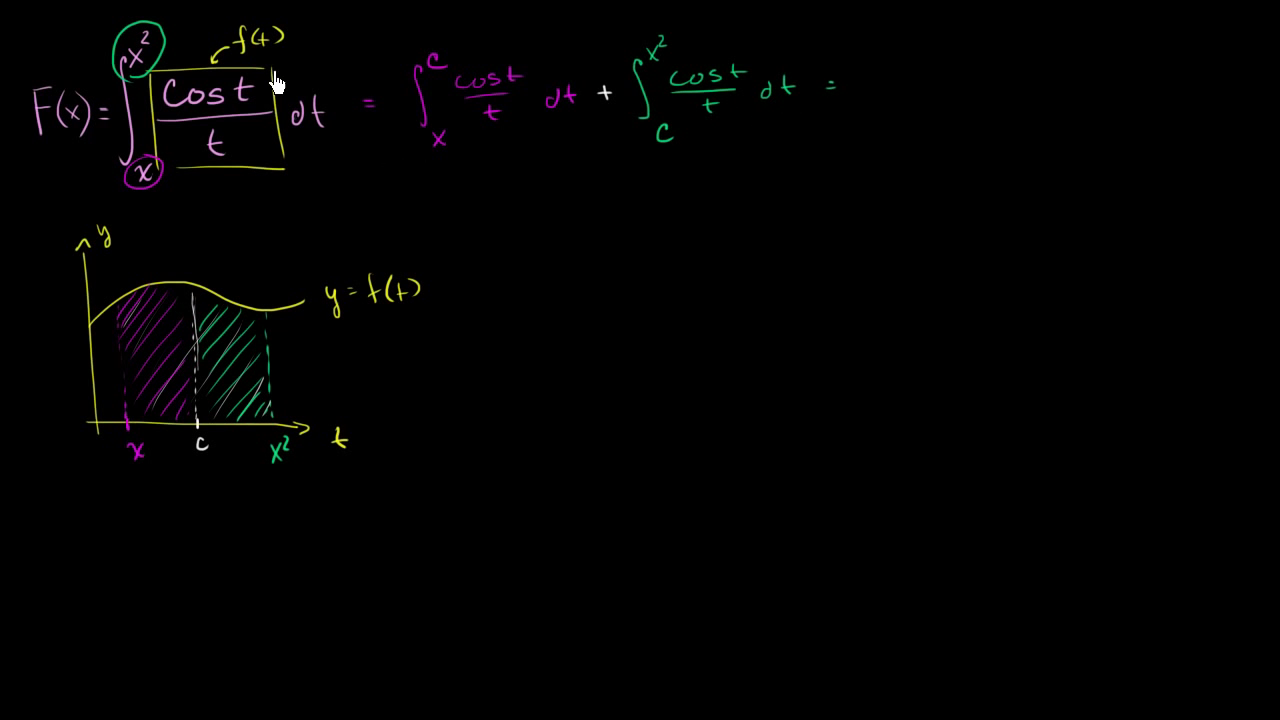 f(t)
F(x) = ∫ₓ^x² cos t / t dt = ∫ₓ^c cos t / t dt + ∫_c^x² cos t / t dt =
y
y = f(t)
x c x² t